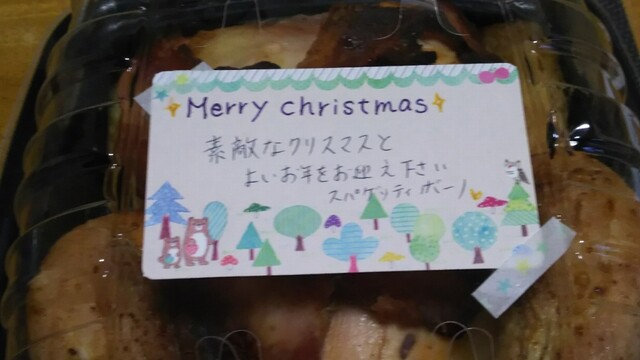 Merry christmas
素敵なクリスマスと
よいお年をお迎え下さい
スパゲッティボーノ